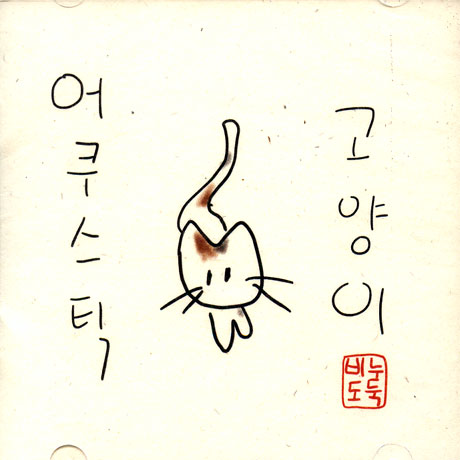 어쿠스틱
고양이
비누
도둑